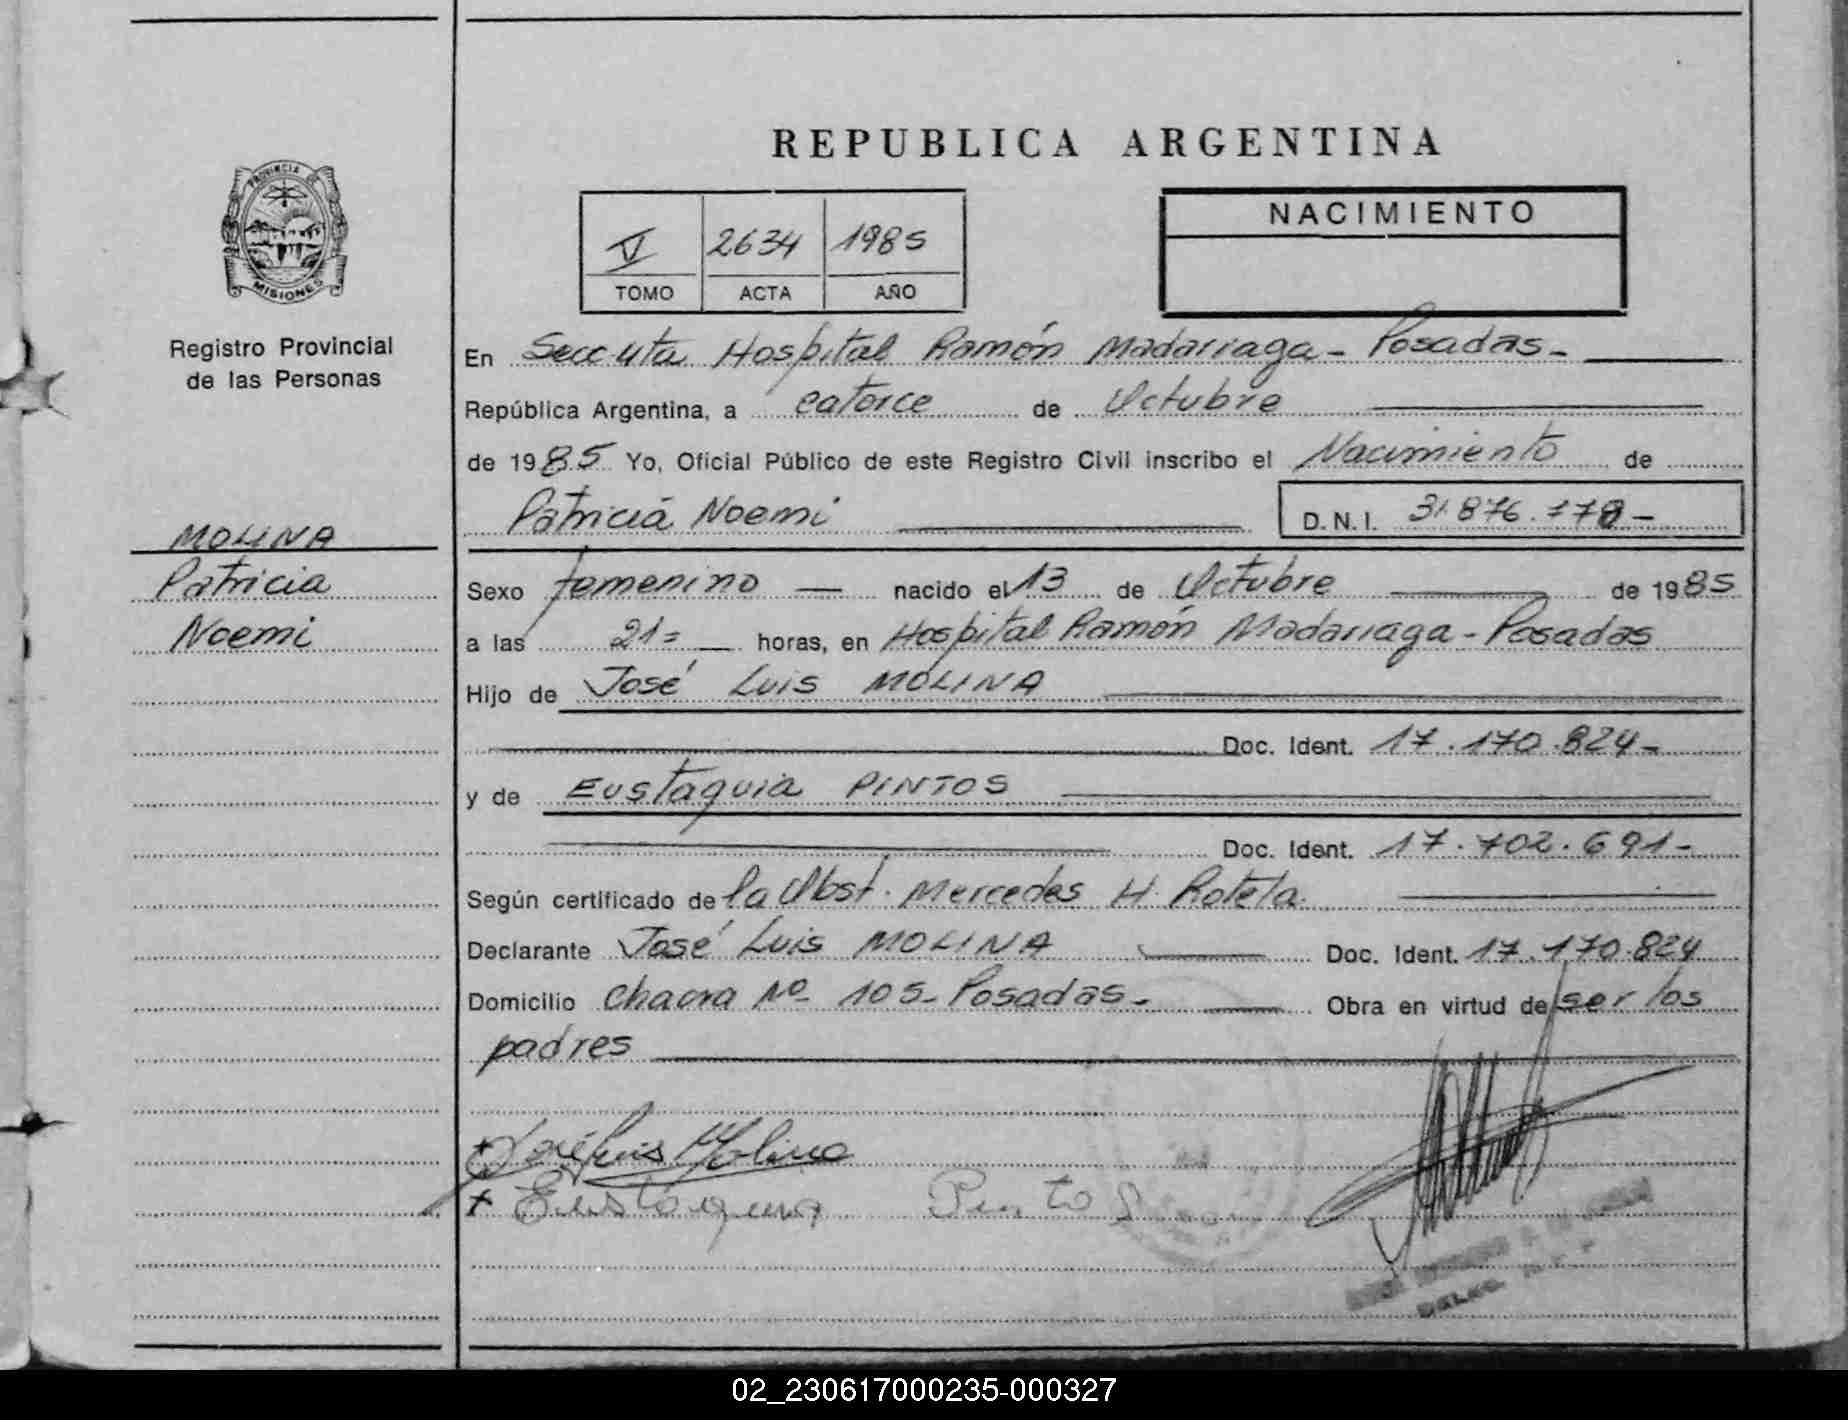 REPUBLICA ARGENTINA
PROVINCIA DE
MISIONES
Registro Provincial
de las Personas
V 2634 1985
TOMO ACTA AÑO
NACIMIENTO
En Hospital Ramón Madariaga - Posadas -
República Argentina, a catorce de Octubre
de 1985 Yo, Oficial Público de este Registro Civil inscribo el Nacimiento de
Patricia Noemi D.N.I. 31.876.178 -
MOLINA
Patricia
Noemi
Sexo femenino — nacido el 13 de Octubre de 1985
a las 21= horas, en Hospital Ramón Madariaga - Posadas
Hijo de José Luis MOLINA
Doc. Ident. 17.170.824 -
y de Eustaquia PINTOS
Doc. Ident. 17.702.691 -
Según certificado de la Obst. Mercedes H. Rotela.
Declarante José Luis MOLINA Doc. Ident. 17.170.824
Domicilio chacra Nº 105 - Posadas - Obra en virtud de ser los
padres
José Luis Molina
+ Eustaquia Pinto
02_230617000235-000327